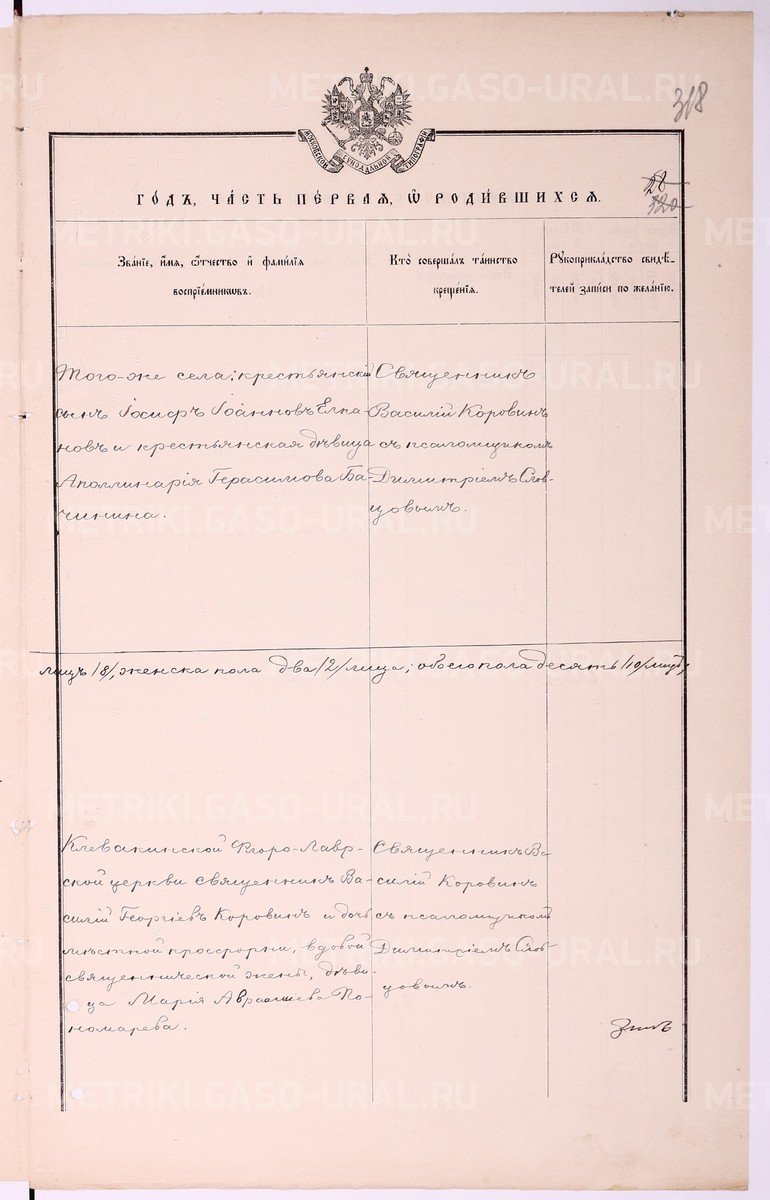 318
МОСКОВСКОЙ СѴНОДАЛЬНОЙ ТИПОГРАФІИ
28
120
ГО́ДЪ, ЧА́СТЬ ПЕ́РВАЯ, Ѿ РОДИ́ВШИХСЯ.
Зва́нїе, и҆́мя, ѻ҆́тчество и҆ фами́лїя
воспрїе́мникѡвъ.
Кто̀ соверша́лъ та́инство
креще́нїя.
Рꙋкоприкла́дство свидѣ́-
телей за́писи по жела́нїю.
Того-же села; крестьянскій
сынъ Іосифъ Іоанновъ Елпа-
новъ и крестьянская дѣвица
Аполлинарія Герасимова Ба-
чинина.
Священникъ
Василій Коровинъ
съ псаломщикомъ
Димитріемъ Слов-
цовымъ.
лицъ /8/, женска пола два /2/ лица; обоего пола десять /10/ лицъ;
Клевакинской Флоро-Лавр-
ской церкви священникъ Ва-
силій Георгіевъ Коровинъ и дочь
мѣстной просфорни, вдовой
священнической жены, дѣви-
ца Марія Авраміева По-
номарева.
Священникъ Ва-
силій Коровинъ
съ псаломщикомъ
Димитріемъ Слов-
цовымъ.
METRIKI.GASO-URAL.RU